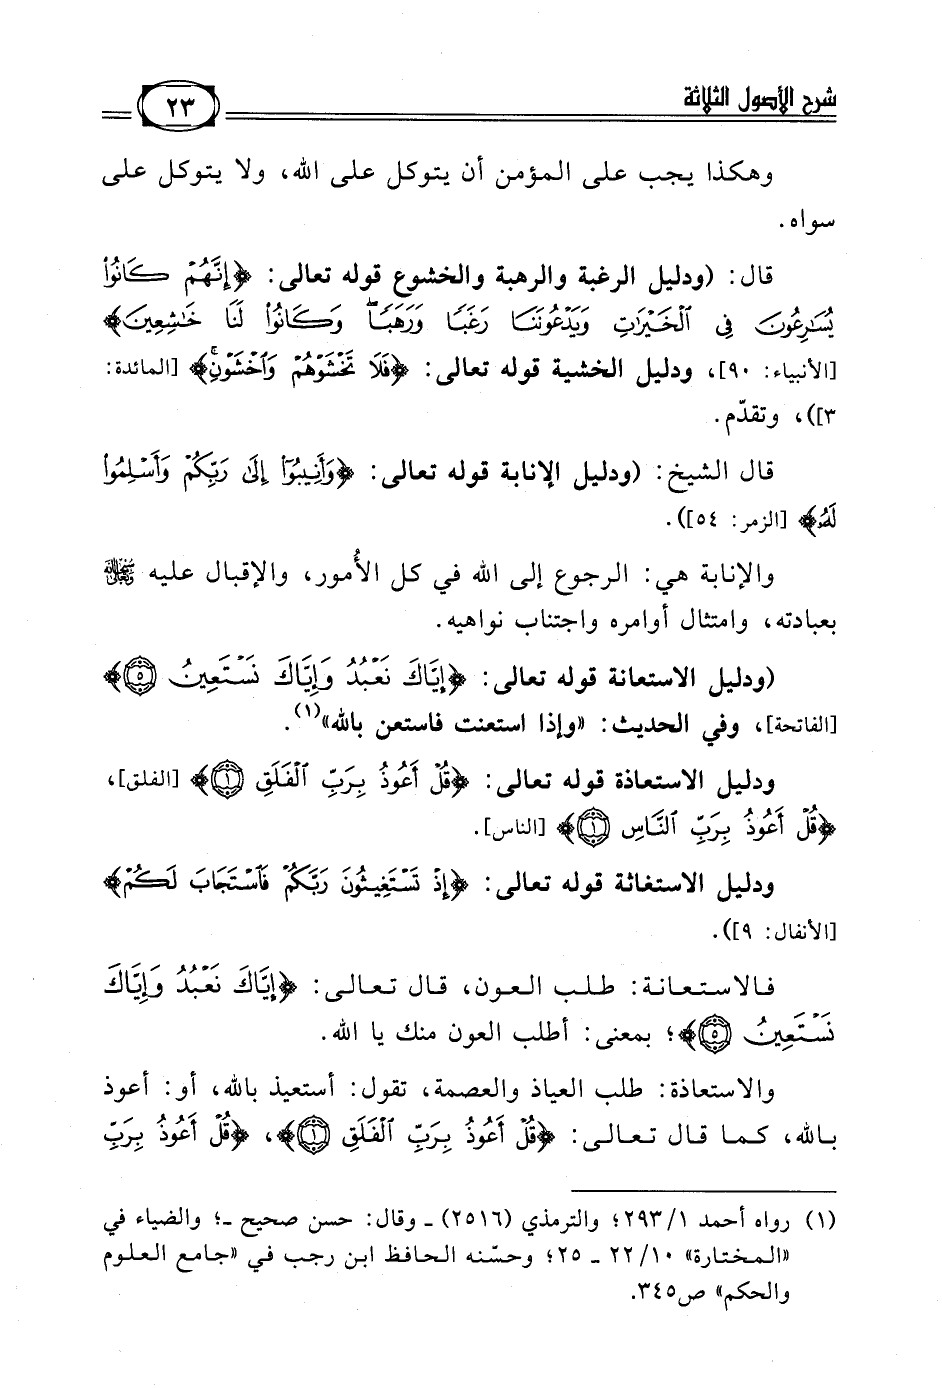 شرح الأصول الثلاثة
٢٣
وهكذا يجب على المؤمن أن يتوكل على الله، ولا يتوكل على
سواه.
قال: (ودليل الرغبة والرهبة والخشوع قوله تعالى: ﴿إِنَّهُمْ كَانُوا۟
يُسَٰرِعُونَ فِى ٱلْخَيْرَٰتِ وَيَدْعُونَنَا رَغَبًا وَرَهَبًا ۖ وَكَانُوا۟ لَنَا خَٰشِعِينَ﴾
[الأنبياء: ٩٠]، ودليل الخشية قوله تعالى: ﴿فَلَا تَخْشَوْهُمْ وَٱخْشَوْنِ ۚ﴾ [المائدة:
٣])، وتقدّم.
قال الشيخ: (ودليل الإنابة قوله تعالى: ﴿وَأَنِيبُوٓا۟ إِلَىٰ رَبِّكُمْ وَأَسْلِمُوا۟
لَهُۥ﴾ [الزمر: ٥٤]).
والإنابة هي: الرجوع إلى الله في كل الأُمور، والإقبال عليه
بعبادته، وامتثال أوامره واجتناب نواهيه.
(ودليل الاستعانة قوله تعالى: ﴿إِيَّاكَ نَعْبُدُ وَإِيَّاكَ نَسْتَعِينُ ٥﴾
[الفاتحة]، وفي الحديث: «وإذا استعنت فاستعن بالله»(١).
ودليل الاستعاذة قوله تعالى: ﴿قُلْ أَعُوذُ بِرَبِّ ٱلْفَلَقِ ١﴾ [الفلق]،
﴿قُلْ أَعُوذُ بِرَبِّ ٱلنَّاسِ ١﴾ [الناس].
ودليل الاستغاثة قوله تعالى: ﴿إِذْ تَسْتَغِيثُونَ رَبَّكُمْ فَٱسْتَجَابَ لَكُمْ﴾
[الأنفال: ٩]).
فالاستعانة: طلب العون، قال تعالى: ﴿إِيَّاكَ نَعْبُدُ وَإِيَّاكَ
نَسْتَعِينُ ٥﴾؛ بمعنى: أطلب العون منك يا الله.
والاستعاذة: طلب العياذ والعصمة، تقول: أستعيذ بالله، أو: أعوذ
بالله، كما قال تعالى: ﴿قُلْ أَعُوذُ بِرَبِّ ٱلْفَلَقِ ١﴾، ﴿قُلْ أَعُوذُ بِرَبِّ
(١) رواه أحمد ٢٩٣/١؛ والترمذي (٢٥١٦) ـ وقال: حسن صحيح ـ؛ والضياء في
«المختارة» ٢٢/١٠ ـ ٢٥؛ وحسّنه الحافظ ابن رجب في «جامع العلوم
والحكم» ص٣٤٥.